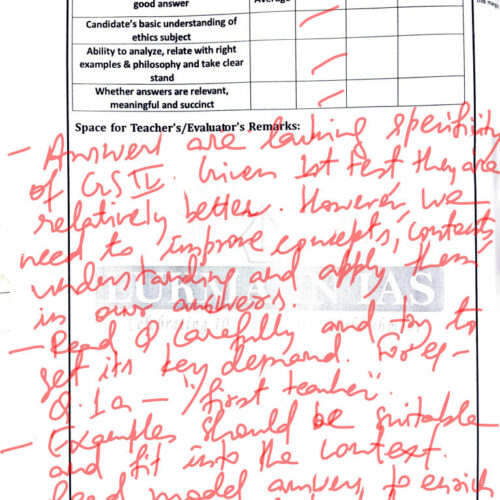 good answer
Average
Candidate's basic understanding of
ethics subject
Ability to analyze, relate with right
examples & philosophy and take clear
stand
Whether answers are relevant,
meaningful and succinct
Space for Teacher's/Evaluator's Remarks:
- Answers are lacking specificity
of GS IV. Given 1st Test they are
relatively better. However we
need to improve concepts, contexts,
understanding and apply them
in our answers.
- Read Q carefully and try to
get its key demand. For eg -
Q.1a - "first teacher".
- Examples should be suitable
and fit into the context.
Read model answers, to enrich